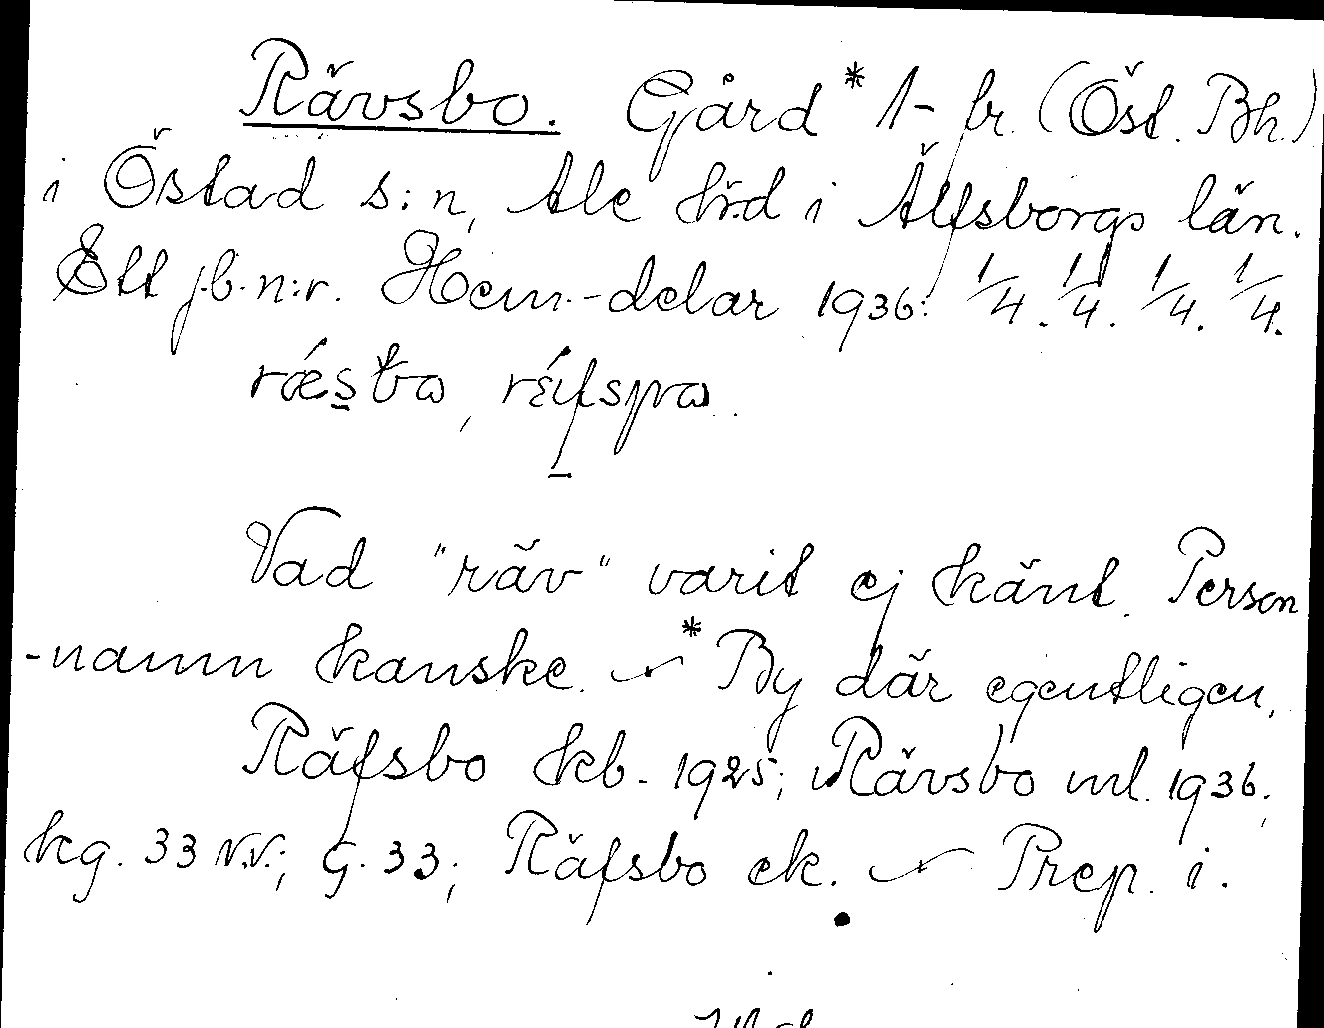 Rävsbo. Gård * 1- br. (Öst. Bh.)
i Östad s:n, Ale hrd i Älfsborgs län.
Ett j.b.n:r. Hem.-delar 1936: 1/4. 1/4. 1/4. 1/4.
Vad "räv" varit ej känt. Person
-namn kanske. * By där egentligen.
Räfsbo kb. 1925; Rävsbo ml. 1936.
kg. 33 N.V.; G. 33; Räfsbo ek. Prep. i.